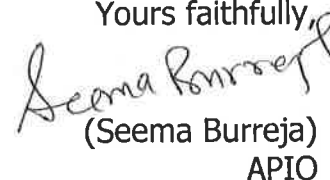 Yours faithfully,
Seema Burreja
(Seema Burreja)
APIO